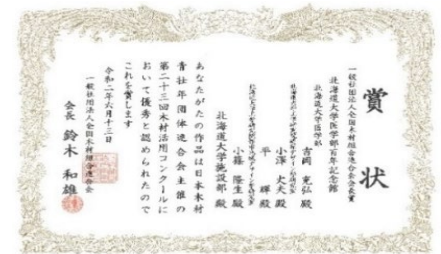 賞状
一般社団法人全国木材組合連合会会長賞
北海道大学医学部百年記念館
北海道大学医学部
吉岡 充弘殿
小澤 丈夫殿
平 輝殿
小篠 隆生殿
北海道大学施設部殿
あなたがたの作品は日本木材
青壮年団体連合会主催の
第二十三回木材活用コンクールに
おいて優秀と認められたので
これを賞します
令和二年六月十三日
一般社団法人全国木材組合連合会
会長 鈴木 和雄